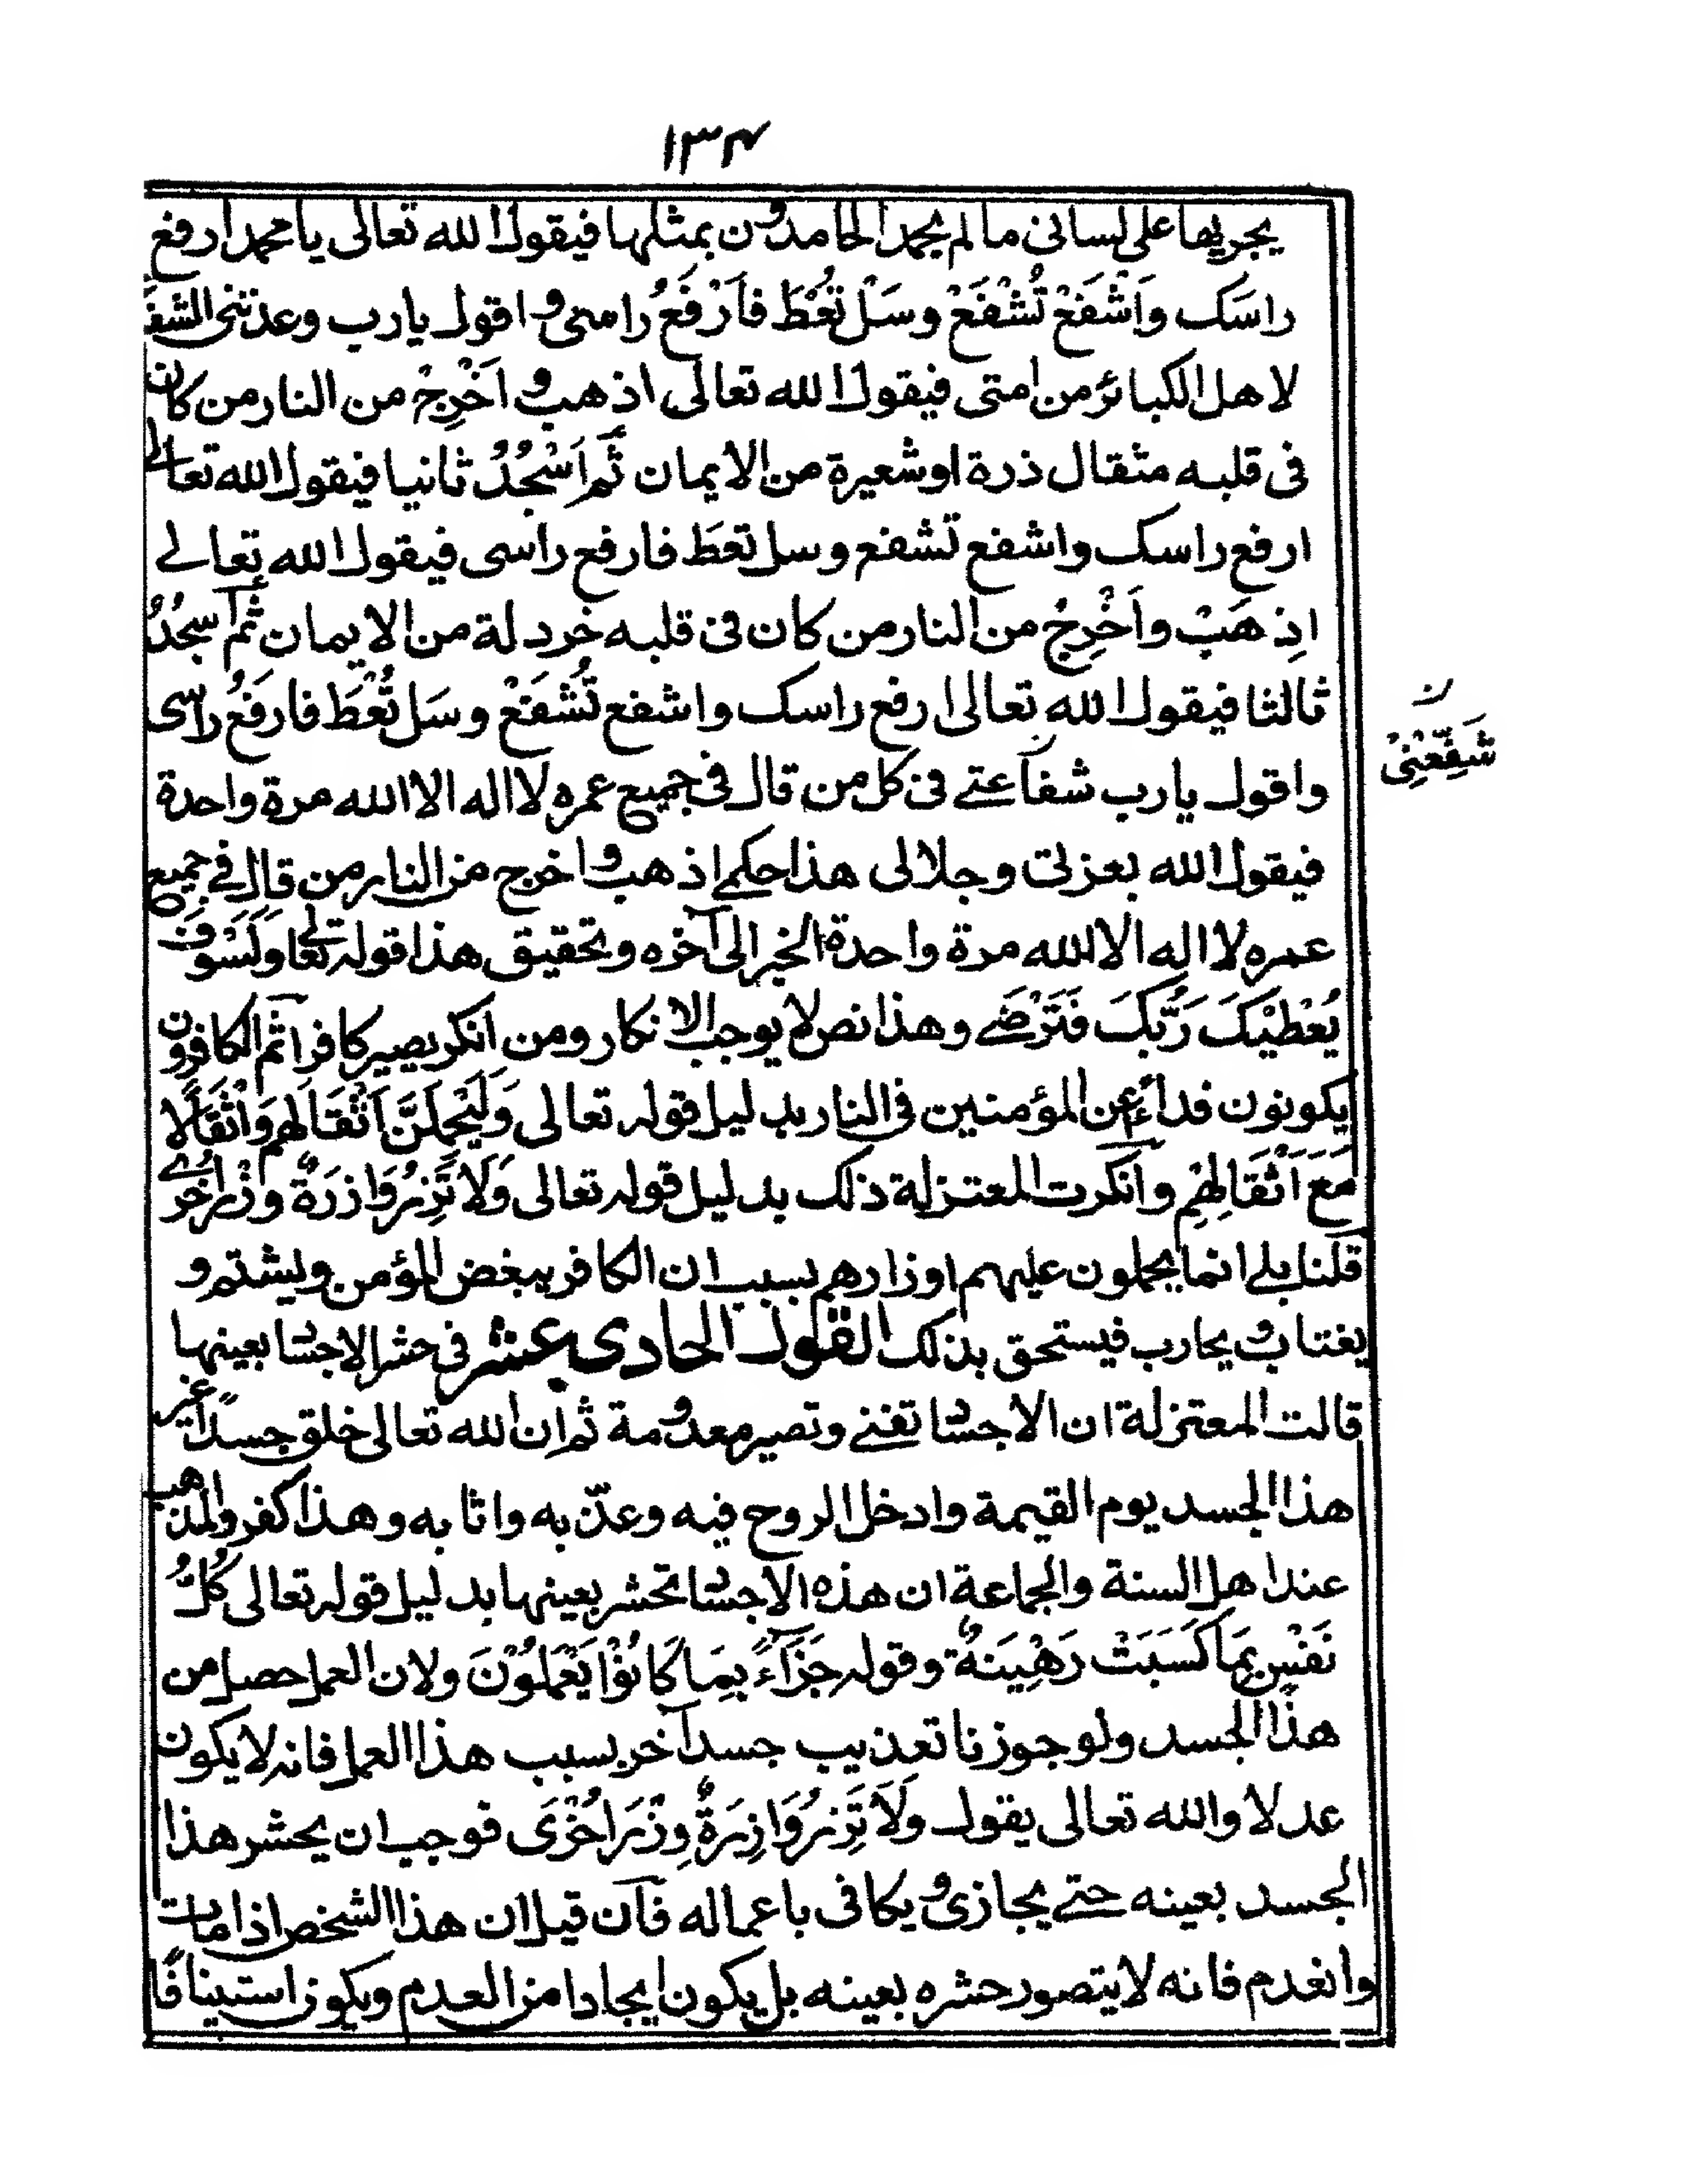 ١٣٤
يجريها على لسانى مالم يحمد الحامدون بمثلها فيقول الله تعالى يا محمد ارفع
راسَك وَاَشْفَعْ تُشْفَعْ وسَلْ تُعْطَ فاَرْفَعُ راسى واقول يارب وعدتنى الشفا
لاهل الكبائر من امتى فيقول الله تعالى اذهب واَخْرِجْ من النار من كان
فى قلبه مثقال ذرة او شعيرة من الايمان ثُم اَسْجُدُ ثانيا فيقول الله تعالى
ارفع راسك واشفع تشفع وسل تعطَ فارفع راسى فيقول الله تعالے
اِذهَبْ واَخْرِجْ من النار من كان فى قلبه خردلة من الايمان ثم اَسجُدُ
ثالثا فيقول الله تعالى ارفع راسك واشفع تُشْفَعْ وسَل تُعْطَ فارفَعُ راسى
واقول يارب شفاعتے فى كل من قال فى جميع عمره لا اله الا الله مرة واحدة
ن
شَفِّعْنِىْ
فيقول الله بعزتى وجلالى هذا حكمے اذهب واخرج من النار من قال فے جميع
عمره لا اله الا الله مرة واحدة الخبر الى آخره وتحقيق هذا قوله تعالے وَلَسَوفَ
يُعْطِيْكَ رَبُّكَ فَتَرْضٰے وهذا نص لا يوجب الانكار ومن انكر يصير كافرا ثم الكافرون
يكونون فداءً عن المؤمنين فى النار بدليل قوله تعالى وَلَيَحْمِلُنَّ اَثْقَالَهم وَاَثْقَالًا
مَعَ اَثْقَالِهِمْ وآنكرت المعتزلة ذلك بدليل قوله تعالى وَلَا تَزِرُ وَازرَةٌ وِزْرَ اُخْرٰے
قلنا بلے انما يحملون عليهم اوزارهم بسبب ان الكافر يبغض المؤمن ويشتم و
يغتاب ويحارب فيستحق بذلك القول الحادى عشر فى حشر الاجساد بعينها
قالت المعتزلة ان الاجساد تفنے وتصير معدومة ثم ان الله تعالى خلق جسدًا غير
هذا الجسد يوم القيمة وادخل الروح فيه وعذّبه واثابه وهذا كفر والمذهب
عند اهل السنة والجماعة ان هذه الاجساد تحشر بعينها بدليل قوله تعالى كُلُّ
نَفْسٍ بِمَا كَسَبَتْ رَهِيْنَةٌ وقوله جَزَآءً بِمَا كَانُوْا يَعْمَلُوْنَ ولان العمل حصل من
هذا الجسد ولو جوزنا تعذيب جسد آخر بسبب هذا العمل فانه لا يكون
عدلا والله تعالى يقول وَلَا تَزِرُ وَازِرَةٌ وِزْرَ اُخْرَى فوجب ان يحشر هذا
الجسد بعينه حتے يجازى ويكافى باعماله فآن قيل ان هذا الشخص اذا مات
وانعدم فانه لا يتصور حشره بعينه بل يكون ايجادا من العدم ويكون استينافًا